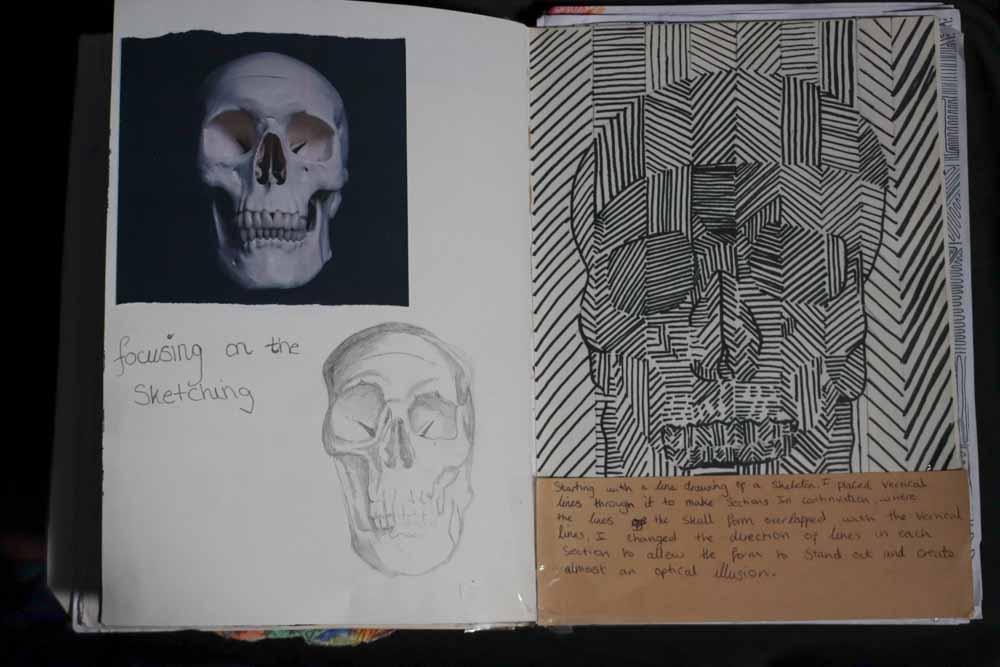 focusing on the
Sketching
Starting with a line drawing of a skeleton. I placed vertical
lines through it to make sections In continuation, where
the lines the skull form overlapped with the vertical
lines, I changed the direction of lines in each
section to allow the form to stand out and create
almost an optical illusion.